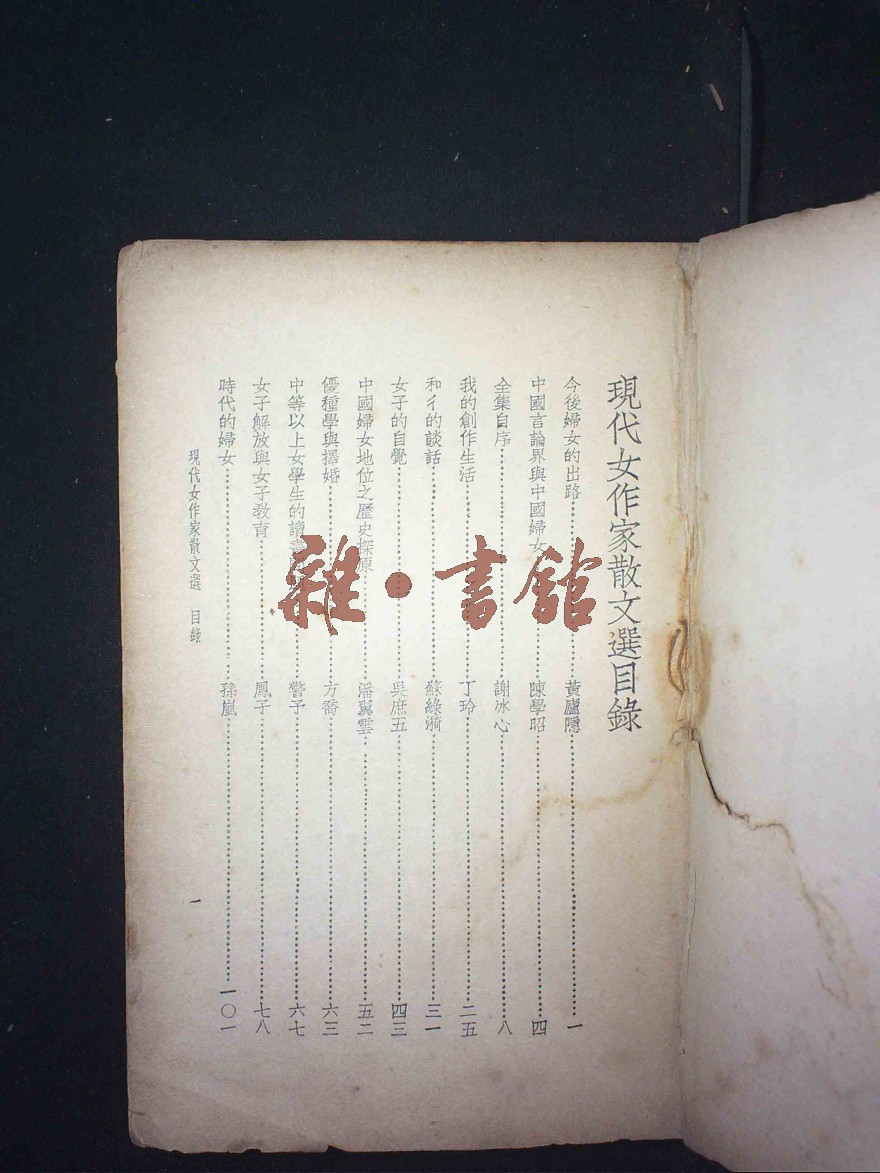 現代女作家散文選目錄
今後婦女的出路……黃廬隱……一
中國言論界與中國婦女……陳學昭……四
全集自序……謝冰心……八
我的創作生活……丁玲……二五
和彳的談話……蘇綠漪……三一
女子的自覺……吳庶五……四三
中國婦女地位之歷史探原……潘翼雲……五二
優種學與擇婚……方喬……六三
中等以上女學生的讀書……警予……六七
女子解放與女子教育……鳳子……七八
時代的婦女……孫嵐……一〇一
現代女作家散文選 目錄
一
雜·書館